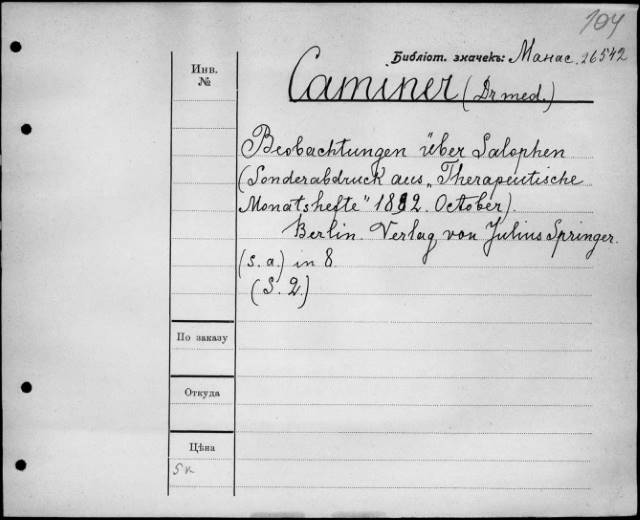 104
Библіот. значекъ: Манас. 26542
Инв.
№
Caminer (Dr med.)
Beobachtungen über Salophen
(Sonderabdruck aus „Therapeutische
Monatshefte" 1892. October).
Berlin. Verlag von Julius Springer.
(s. a.) in 8.
(S. 2.)
По заказу
Откуда
Цѣна
5 к